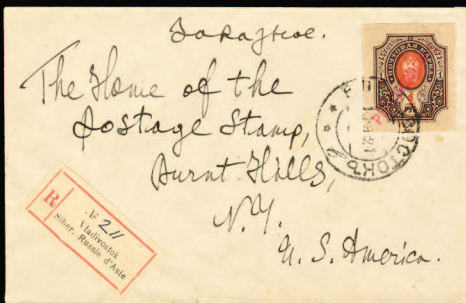 Заказное.
The Home of the
Postage Stamp,
Burnt Hills,
N.Y.
U. S. America.
R
№ 211
Vladivostok
Siber. Russie d'Asie
ПОЧТОВАЯ МАРКА
ВОСТОКЪ